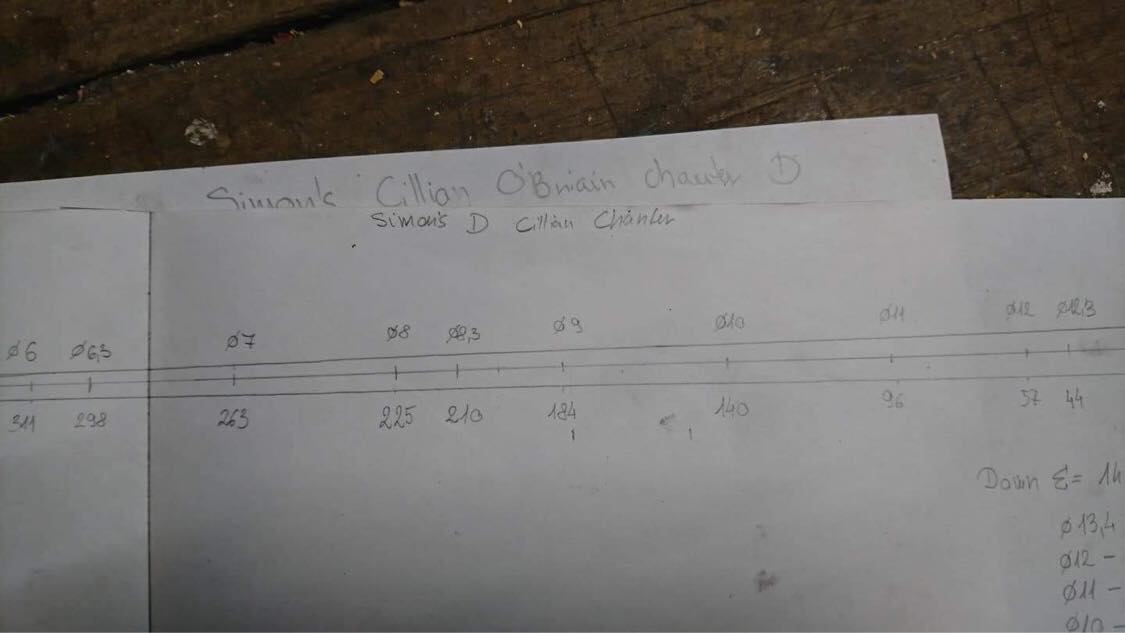 Simon's Cillian O'Briain chanter D
Simon's D Cillian Chanter
Ø6 Ø6,3 Ø7 Ø8 Ø8,3 Ø9 Ø10 Ø11 Ø12 Ø12,3
311 298 263 225 210 184 140 96 57 44
Down E = 14
Ø13,4
Ø12 -
Ø11 -
Ø10 -